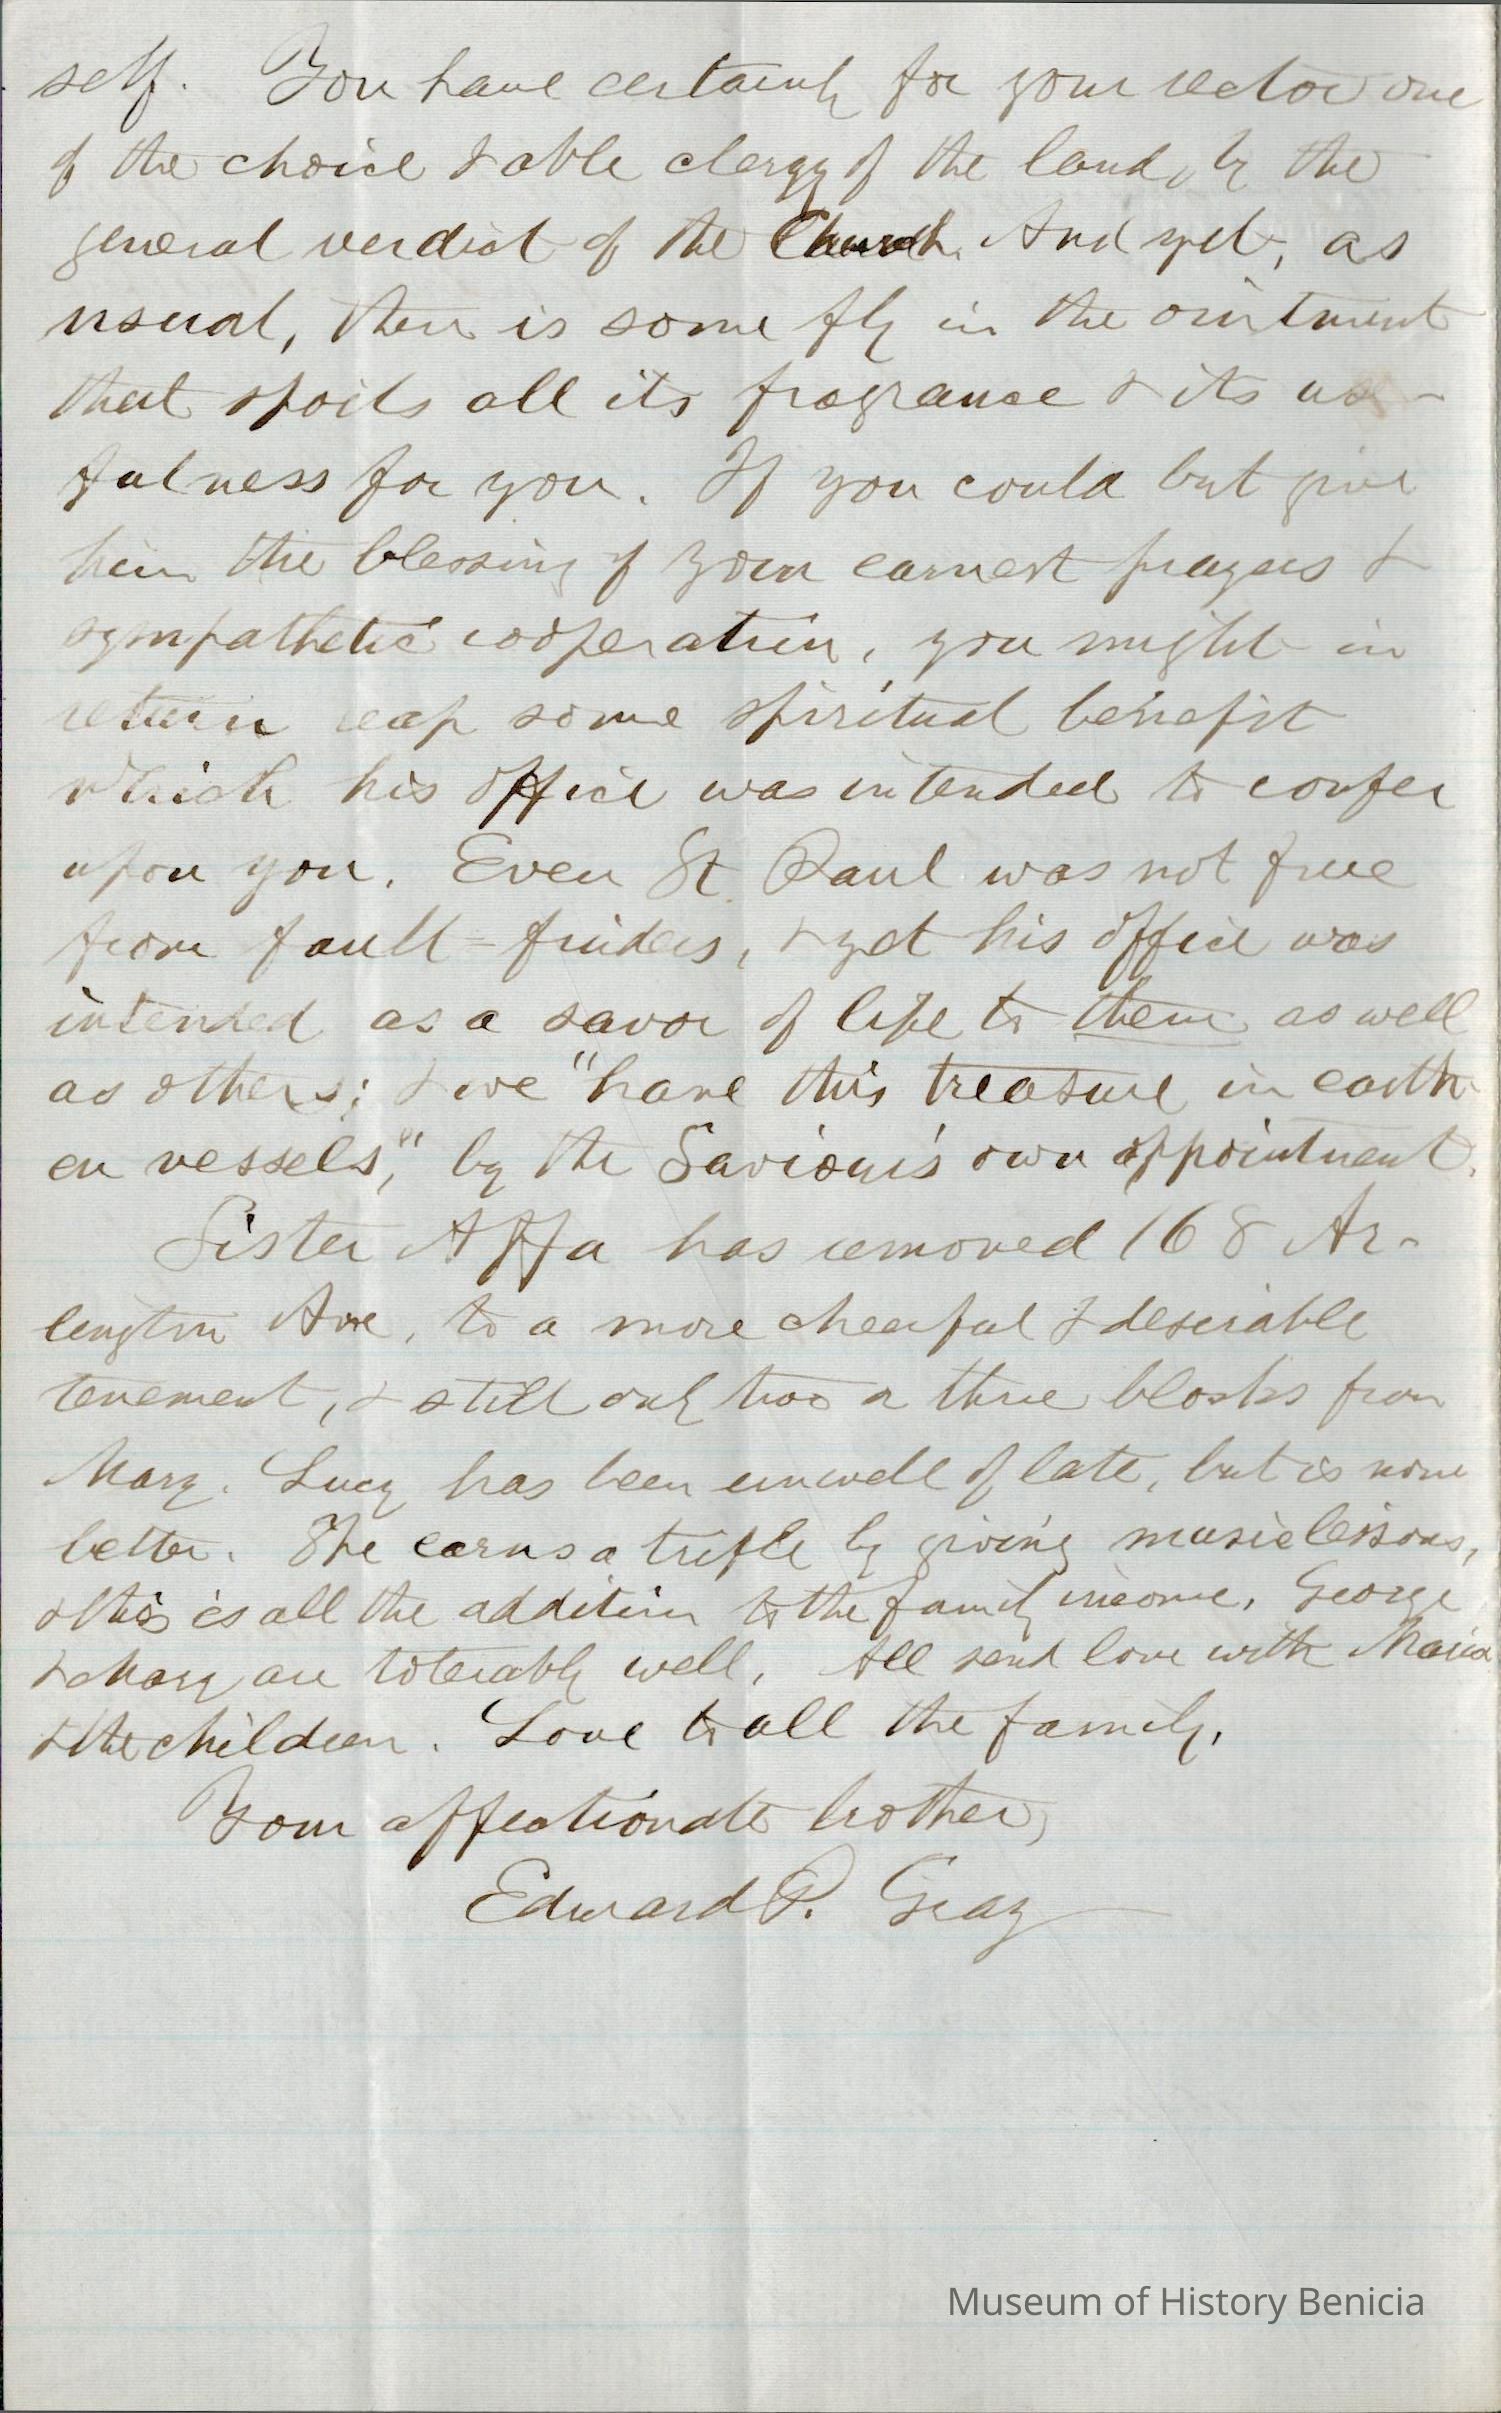 self. You have certainly for your rector one
of the choice & able clergy of the land, by the
general verdict of the Church. And yet, as
usual, there is some fly in the ointment
that spoils all its fragrance & its use-
fulness for you. If you could but give
him the blessing of your earnest prayers &
sympathetic coöperation, you might in
return reap some spiritual benefit
which his office was intended to confer
upon you. Even St. Paul was not free
from fault=finders, & yet his office was
intended as a savor of life to them as well
as others; & we "have this treasure in earth-
en vessels," by the Saviour's own appointment.
Sister Affa has removed 168 Ar-
lington Ave, to a more cheerful & desirable
tenement, & still only two or three blocks from
Mary. Lucy has been unwell of late, but is now
better. She earns a trifle by giving music lessons,
& this is all the addition to the family income. George
& Mary are tolerably well. All send love with Maria
& the children. Love to all the family.
Your affectionate brother,
Edward P. Gray
Museum of History Benicia